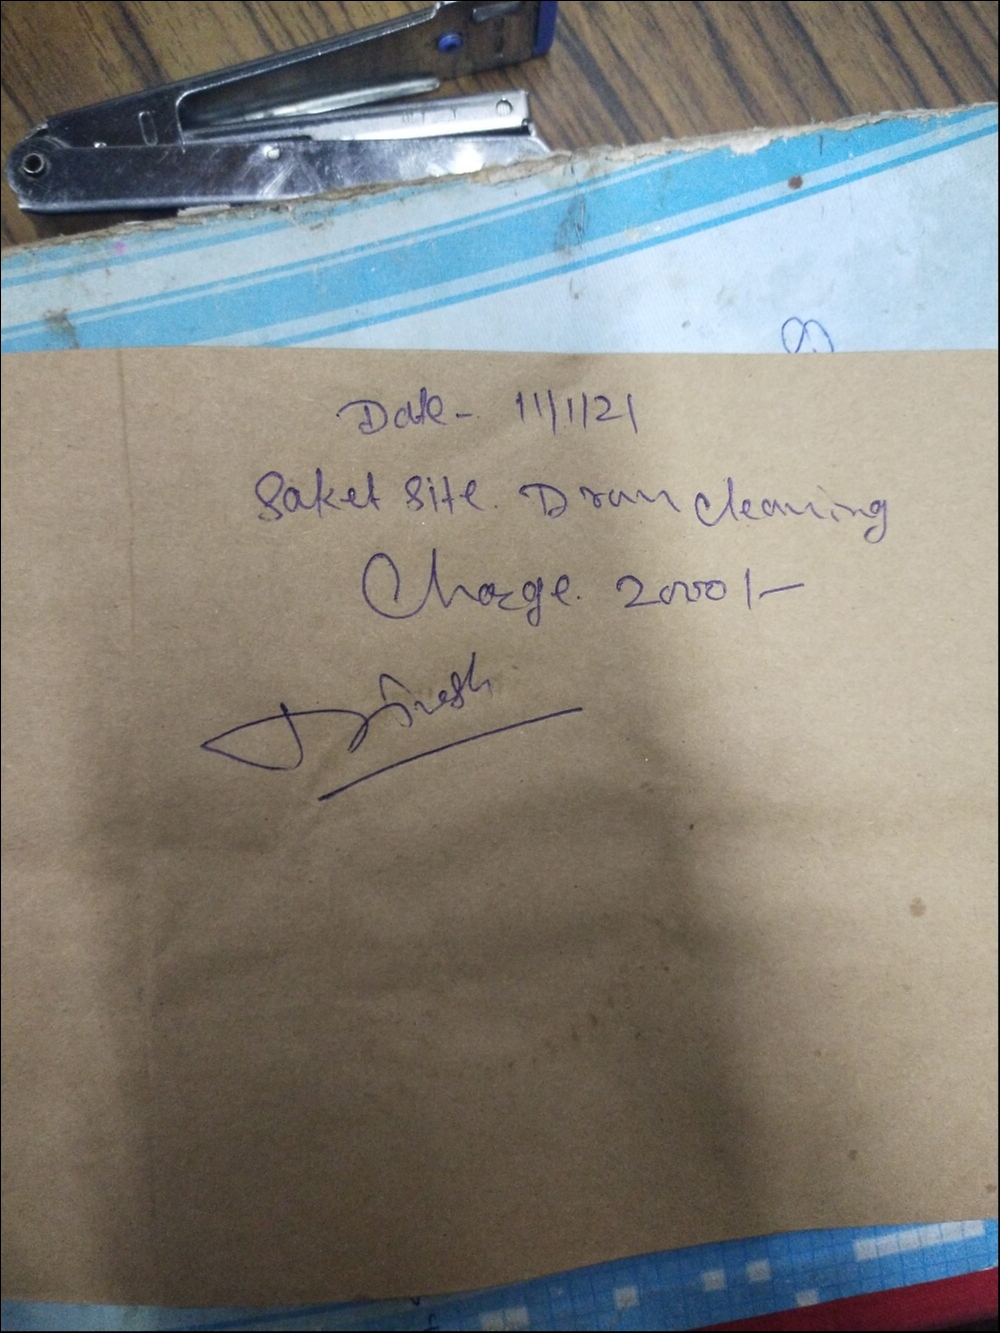 Date - 11/1/21
Saket Site. Drain cleaning
Charge. 2000/-
Dinesh